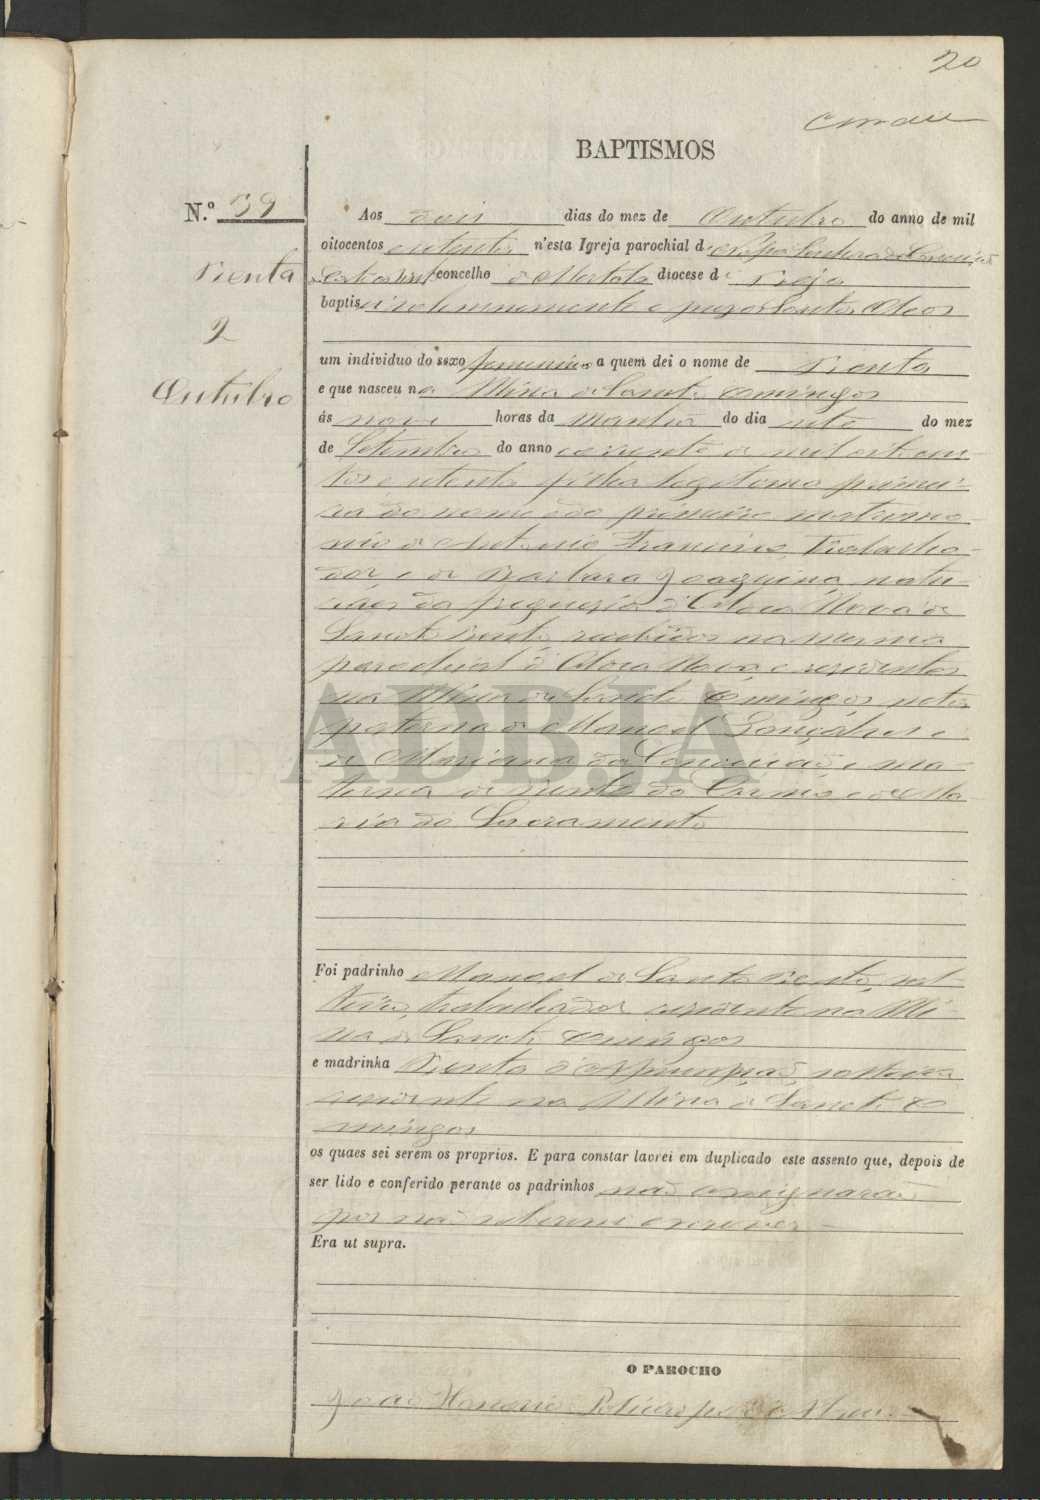 20
BAPTISMOS
N.º 39
Benta
2
Outubro
Aos dois dias do mez de Outubro do anno de mil
oitocentos oitenta n'esta Igreja parochial de Nossa Senhora da Conceição
concelho de Mertola diocese de Beja
baptisei solemnemente e puz os Santos Oleos
um individuo do sexo femenino a quem dei o nome de Benta
e que nasceu na Mina de Sancto Domingos
ás nove horas da manhã do dia sete do mez
de Setembro do anno corrente de mil oitocen-
tos e oitenta filha legitima primei-
ra do nome e do primeiro matrimo-
nio de Antonio Francisco, Trabalha-
dor e de Barbara Joaquina, natu-
raes da freguesia d'Aldea Nova de
Sancto Bento recebidos na mesma
parochial d'Aldea Nova e residentes
na Mina de Sancto Domingos neta
paterna de Manoel Gonçalves e
de Marianna da Conceição e ma-
terna de Bento do Carmo e de Ma
ria do Sacramento
Foi padrinho Manoel de Santo Bento, sol-
teiro, trabalhador residente na Mi-
na de Sancto Domingos
e madrinha Benta d'Assumpção solteira
residente na Mina de Sancto Do
mingos
os quaes sei serem os proprios. E para constar lavrei em duplicado este assento que, depois de
ser lido e conferido perante os padrinhos não assignarão
por não saberem escrever
Era ut supra.
O PAROCHO
João Honorio
ADBJA